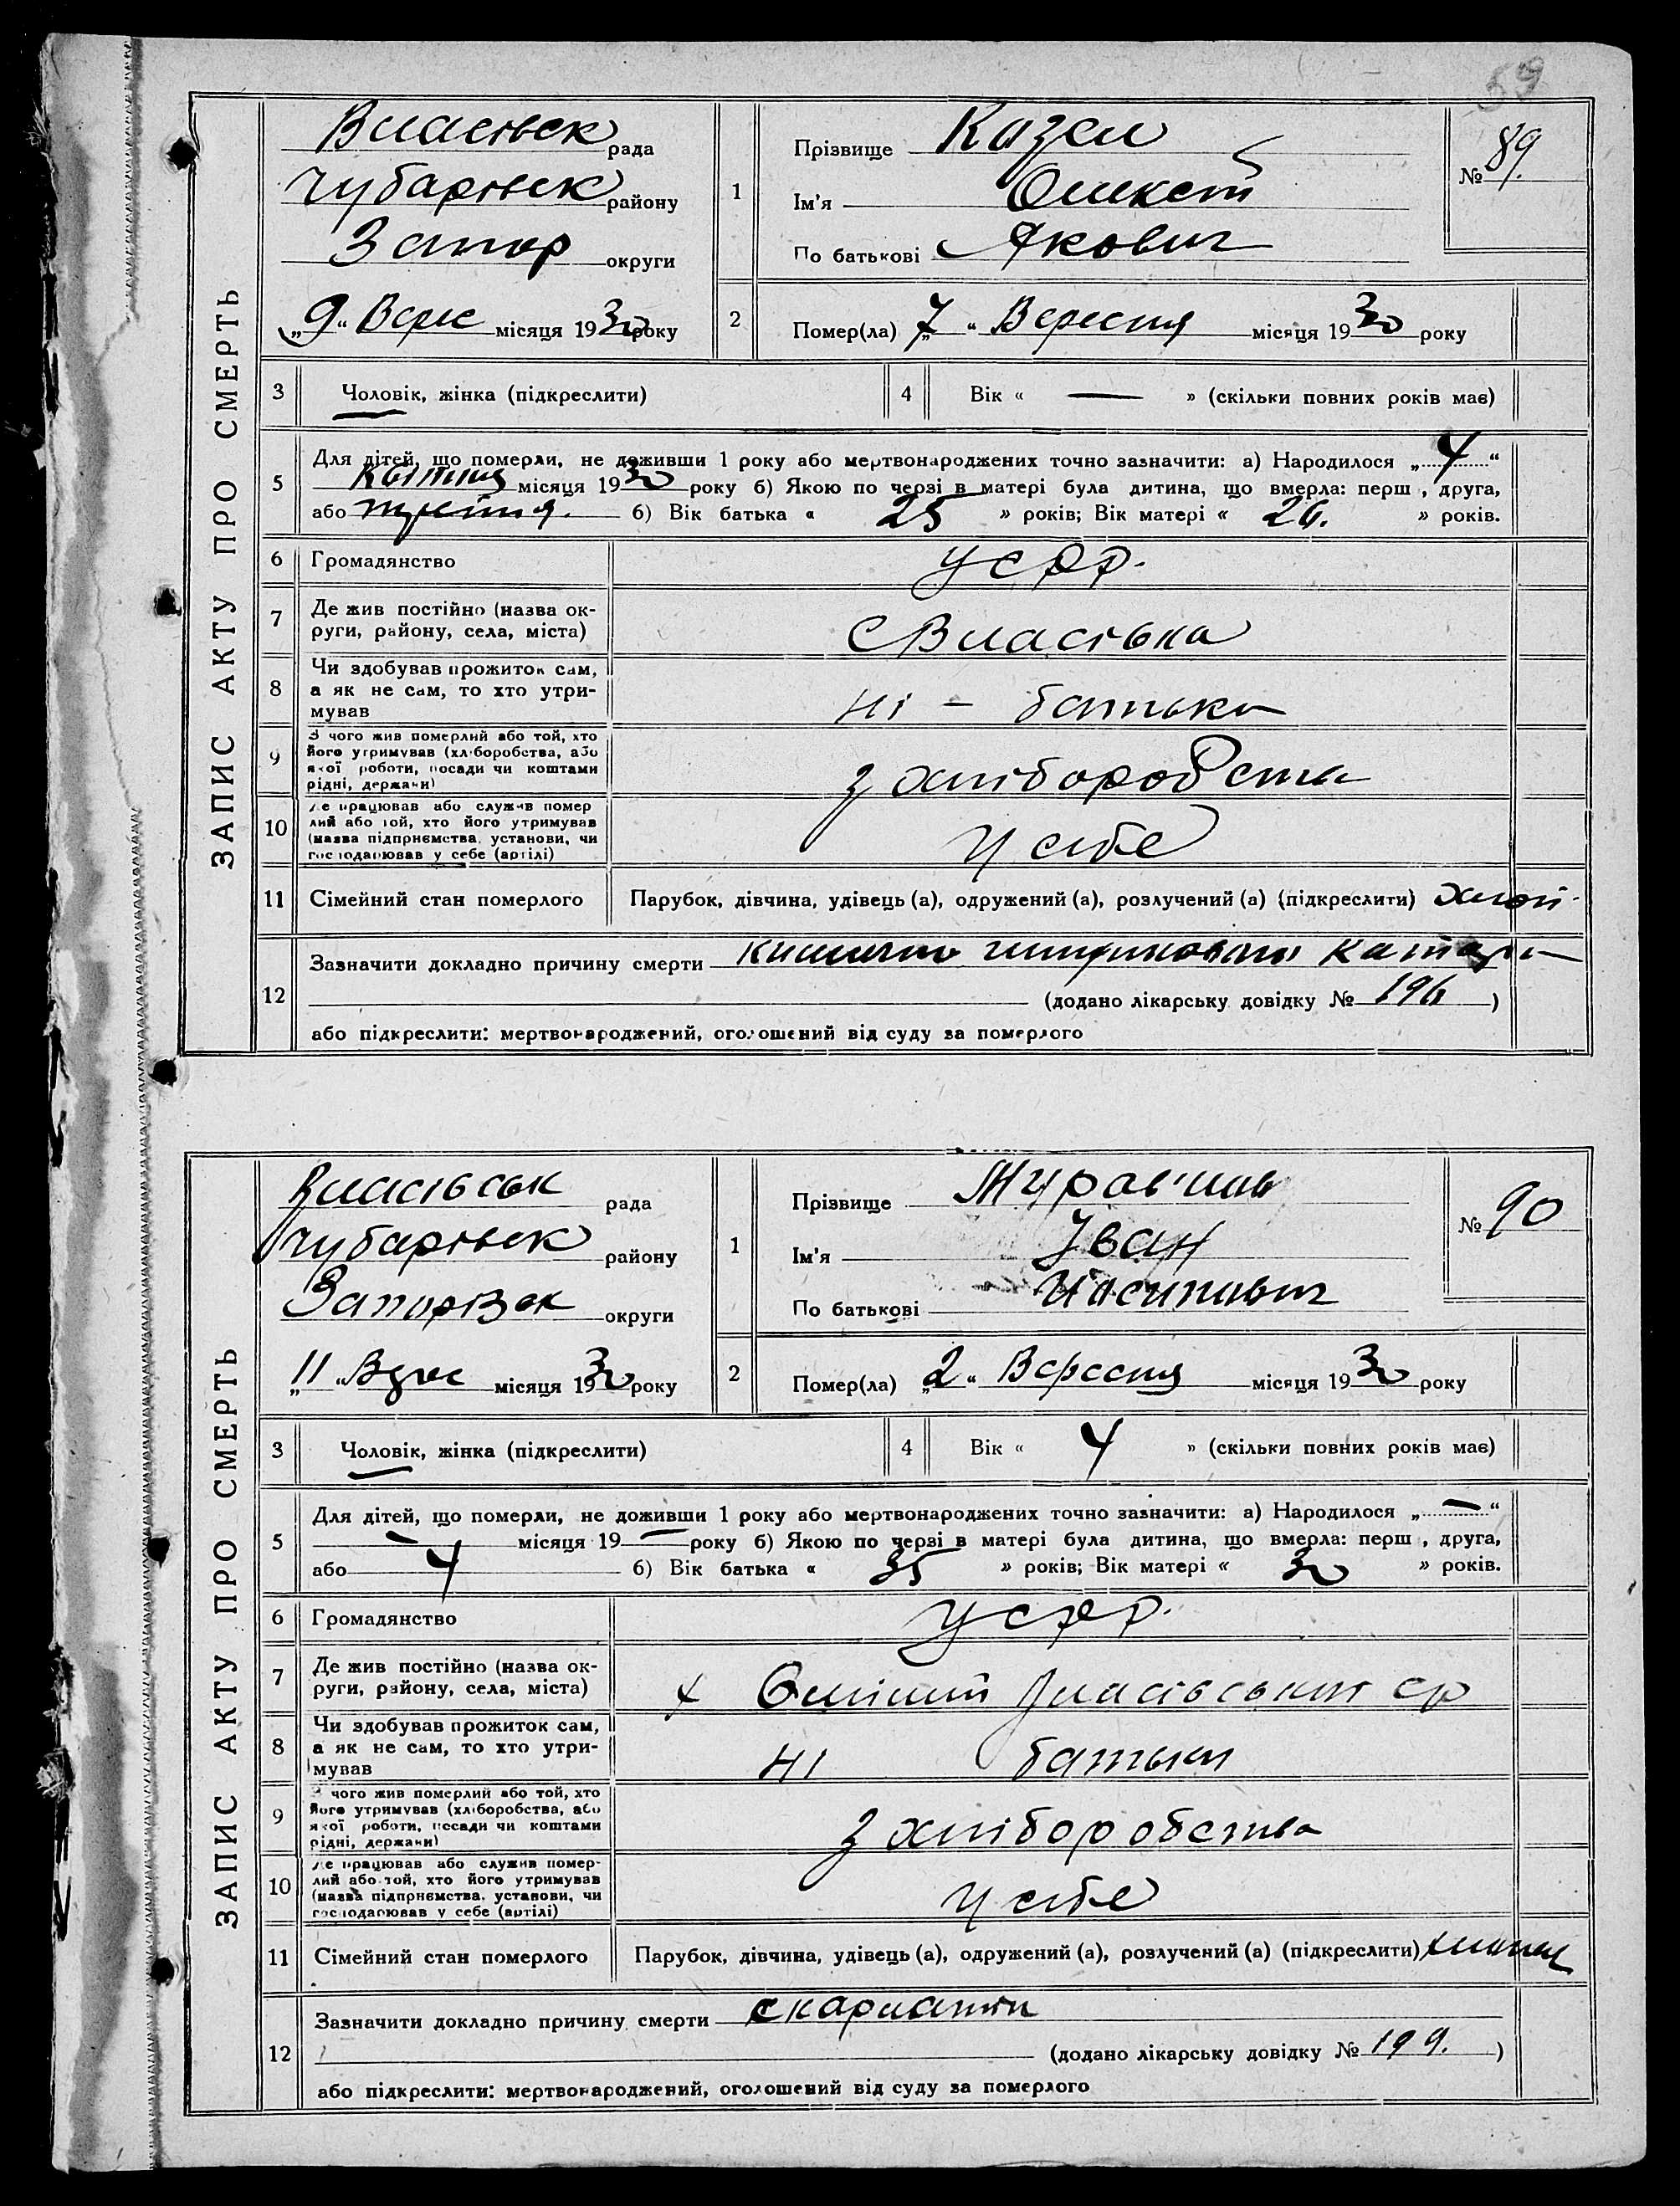 59
ЗАПИС АКТУ ПРО СМЕРТЬ
Власівськ рада
Чубарівськ району
Запор округи
„9“ Верес місяця 1930 року
1
Прізвище Казел
Ім'я Олексій
По батькові Якович
№ 89.
2
Помер(ла) „7“ Вересня місяця 1930 року
3 Чоловік, жінка (підкреслити)
4 Вік « — » (скільки повних років має)
5 Для дітей, що померли, не доживши 1 року або мертвонароджених точно зазначити: а) Народилося „4“
Квітня місяця 1930 року б) Якою по черзі в матері була дитина, що вмерла: перш , друга,
або третя. б) Вік батька « 25 » років; Вік матері « 26. » років.
6 Громадянство УСРР.
7 Де жив постійно (назва ок-
руги, району, села, міста) с Власівка
8 Чи здобував прожиток сам,
а як не сам, то хто утри-
мував ні – батьки
9 З чого жив померлий або той, хто
його утримував (хліборобства, або
якої роботи, посади чи коштами
рідні, держави) з хліборобства
10 Де працював або служив помер
лий або той, хто його утримував
(назва підприємства, установи, чи
господарював у себе (артілі) у себе
11 Сімейний стан померлого Парубок, дівчина, удівець (а), одружений (а), розлучений (а) (підкреслити)
12 Зазначити докладно причину смерти катар
(додано лікарську довідку № 196)
або підкреслити: мертвонароджений, оголошений від суду за померлого
ЗАПИС АКТУ ПРО СМЕРТЬ
Власівськ рада
Чубарівськ району
Запорізьк округи
„11“ Верес місяця 1930 року
1
Прізвище Журавльов
Ім'я Іван
По батькові Йосипович
№ 90
2
Помер(ла) „2“ Вересня місяця 1930 року
3 Чоловік, жінка (підкреслити)
4 Вік « 4 » (скільки повних років має)
5 Для дітей, що померли, не доживши 1 року або мертвонароджених точно зазначити: а) Народилося „—“
— місяця 19— року б) Якою по черзі в матері була дитина, що вмерла: перш , друга,
або 4 б) Вік батька « 35 » років; Вік матері « 30 » років.
6 Громадянство УСРР.
7 Де жив постійно (назва ок-
руги, району, села, міста) х Власівської ср
8 Чи здобував прожиток сам,
а як не сам, то хто утри-
мував ні батьки
9 З чого жив померлий або той, хто
його утримував (хліборобства, або
якої роботи, посади чи коштами
рідні, держави) з хліборобства
10 Де працював або служив помер-
лий або той, хто його утримував
(назва підприємства, установи, чи
господарював у себе (артілі) у себе
11 Сімейний стан померлого Парубок, дівчина, удівець (а), одружений (а), розлучений (а) (підкреслити) хлопец
12 Зазначити докладно причину смерти скарлатин
(додано лікарську довідку № 199.)
або підкреслити: мертвонароджений, оголошений від суду за померлого